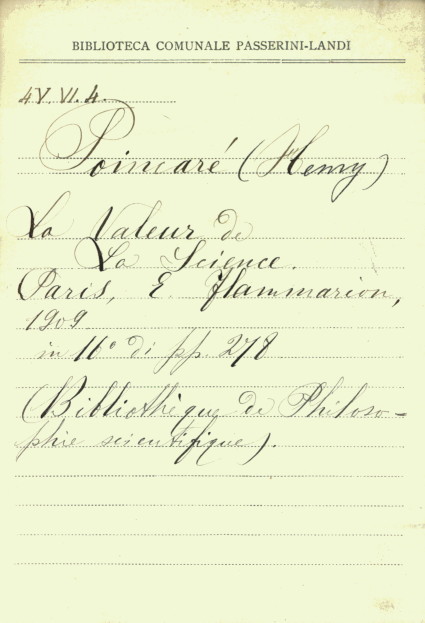 BIBLIOTECA COMUNALE PASSERINI-LANDI
4Y.VI.4.
Poincaré (Henry)
La Valeur de
La Science.
Paris, E. Flammarion,
1909
in 16° di pp. 278
(Bibliothèque de Philoso-
phie scientifique).